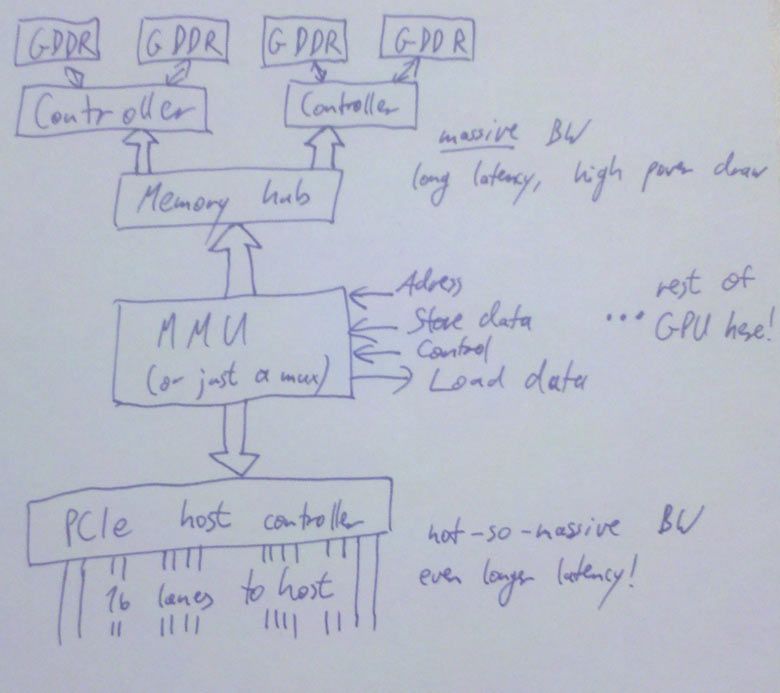 GDDR GDDR GDDR GDDR
Controller Controller
massive BW
long latency, high power draw
Memory hub
MMU
(or just a mux)
Adress
Store data
Control
Load data
... rest of
GPU here!
PCIe host controller
16 lanes to host
not-so-massive BW
even longer latency!